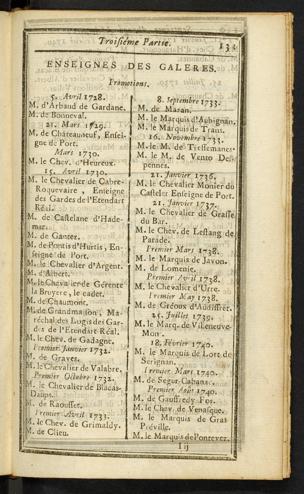 Troisiéme Partie.
ENSEIGNES DES GALERES.
Promotions.
5. Avril 1728.
M. d'Arbaud de Gardane.
M. de Bonneval.
21. Mars 1729.
M. de Châteauneuf, Ensei-
gne de Port.
Mars 1730.
M. le Chev. d'Heureux.
15. Avril 1730.
M. le Chevalier de Cabre-
Roquevaire, Enseigne
des Gardes de l'Etendart
Réal.
M. de Castelane d'Hade-
mar.
M. de Ganter.
M. de Pontis d'Hurtis, En-
seigne de Port.
M. le Chevalier d'Argent.
M. d'Albert.
M. le Chevalier de Gérente
la Bruyere, le cadet.
M. de Chaumont.
M. de Grandmaison, Ma-
réchal des Logis des Gar-
des de l'Etendart Réal.
M. le Chev. de Gadagne.
Premier Janvier 1732.
M. de Gravet.
M. le Chevalier de Valabre.
Premier Octobre 1732.
M. le Chevalier de Blacas-
Daups.
M. de Raousset.
Premier Avril 1733.
M. le Chev. de Grimaldy.
M. de Clieu.
8. Septembre 1733.
M. de Maran.
M. le Marquis d'Aubignan.
M. le Marquis de Trans.
16. Novembre 1733.
M. le M. de Tressemanes.
M. le M. de Vento Des-
pennes.
21. Janvier 1736.
M. le Chevalier Monier du
Castelet Enseigne de Port.
21. Janvier 1737.
M. le Chevalier de Grasse
du Bar.
M. le Chev. de Lestang de
Parade.
Premier Mars 1738.
M. le Marquis de Javon.
M. de Lomenie.
Premier Avril 1738.
M. le Chevalier d'Urre.
Premier May 1738.
M. de Creoux d'Audiffret.
25. Juillet 1739.
M. le Marq. de Villeneuve-
Mon
18. Février 1740.
M. le Marquis de Lort de
Serignan.
Premier Mars 1740.
M. de Segur-Cabanac.
Premier Août 1740.
M. de Gauffredy For.
M. le Chev. de Venasque.
M. le Marquis de Gras
Préville.
M. le Marquis de Pontevez.
I ij